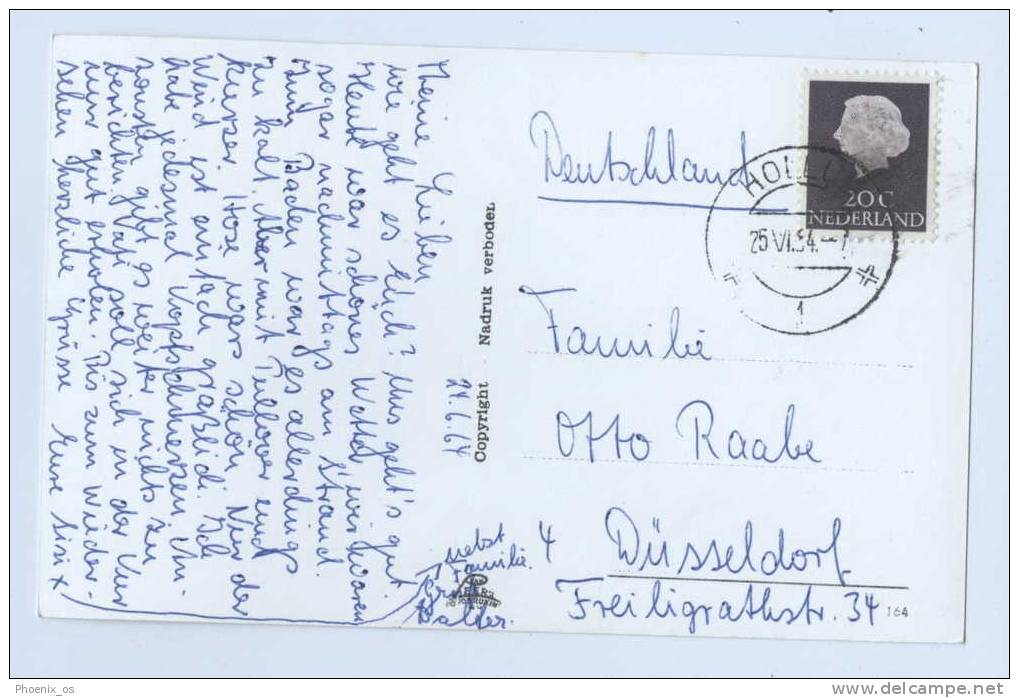 24.6.64
Meine Lieben
wie geht es Euch? Uns geht's gut.
Heute war schönes Wetter, wir waren
sogar nachmittags am Strand.
Zum Baden war es allerdings
zu kalt. Aber mit Pullover und
kurzer Hose wars schön. Nur der
Wind ist einfach gräßlich. Ich
habe jedesmal Kopfschmerzen. An-
sonsten gibt's weiter nichts zu
berichten. soll sich in der Kur
nur gut erholen. Bis zum Wieder-
sehen herzliche Grüsse Eure Sisi x
nebst
Familie
Copyright - Nadruk verboden
Deutschland
20 C
NEDERLAND
25 VI.
1
Familie
Otto Raabe
4 Düsseldorf
Freiligrathstr. 34
164
Phoenix_os
www.delcampe.net